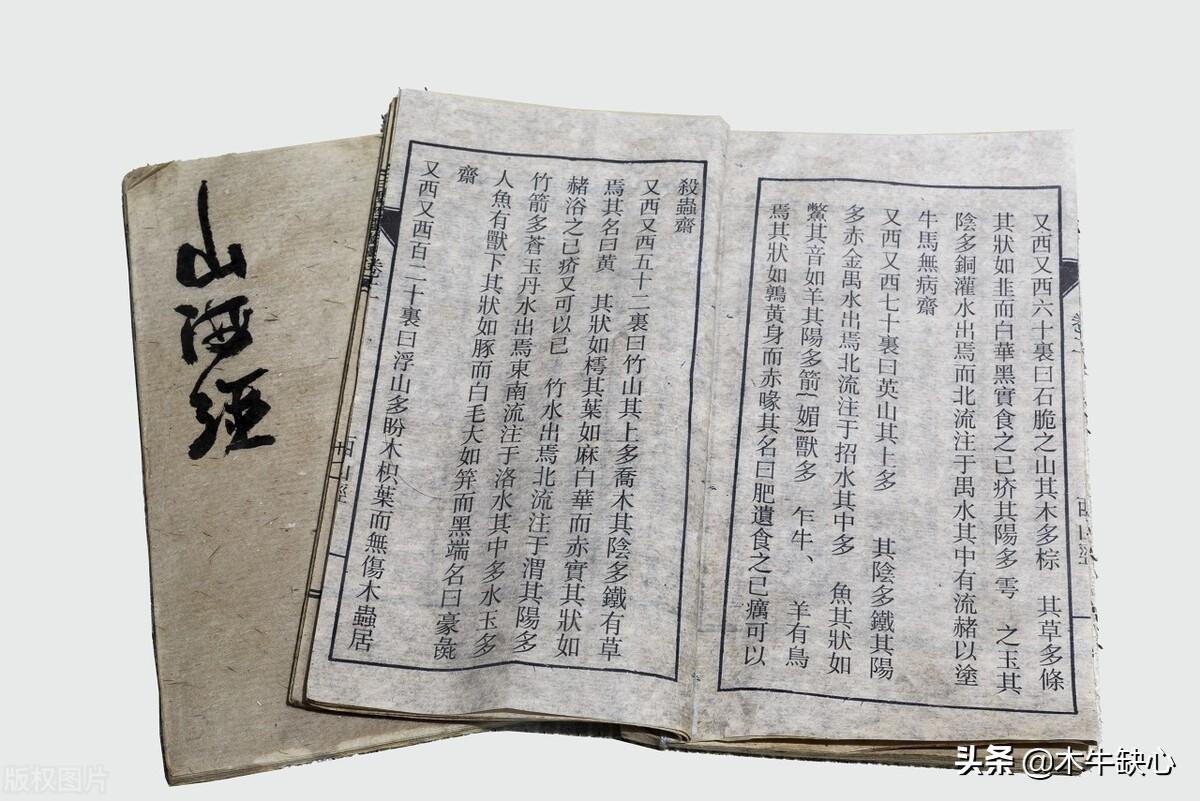 山海經
又西又西六十裏曰石脆之山其木多棕　其草多條
其狀如韭而白華黑實食之已疥其陽多㻬　之玉其
陰多銅灌水出焉而北流注于禺水其中有流赭以塗
牛馬無病齋
又西又西七十裏曰英山其上多　其陰多鐵其陽
多赤金禺水出焉北流注于招水其中多　魚其狀如
鱉其音如羊其陽多箭{媚}獸多　乍牛、　羊有鳥
焉其狀如鶉黃身而赤喙其名曰肥遺食之已癘可以
殺蟲齋
又西又西五十二裏曰竹山其上多喬木其陰多鐵有草
焉其名曰黃　其狀如樗其葉如麻白華而赤實其狀如
赭浴之已疥又可以已　竹水出焉北流注于渭其陽多
竹箭多蒼玉丹水出焉東南流注于洛水其中多水玉多
人魚有獸下其狀如豚而白毛大如笄而黑端名曰豪彘
齋
又西又西百二十裏曰浮山多盼木枳葉而無傷木蟲居
西山經
十二
版权图片
头条 @木牛缺心